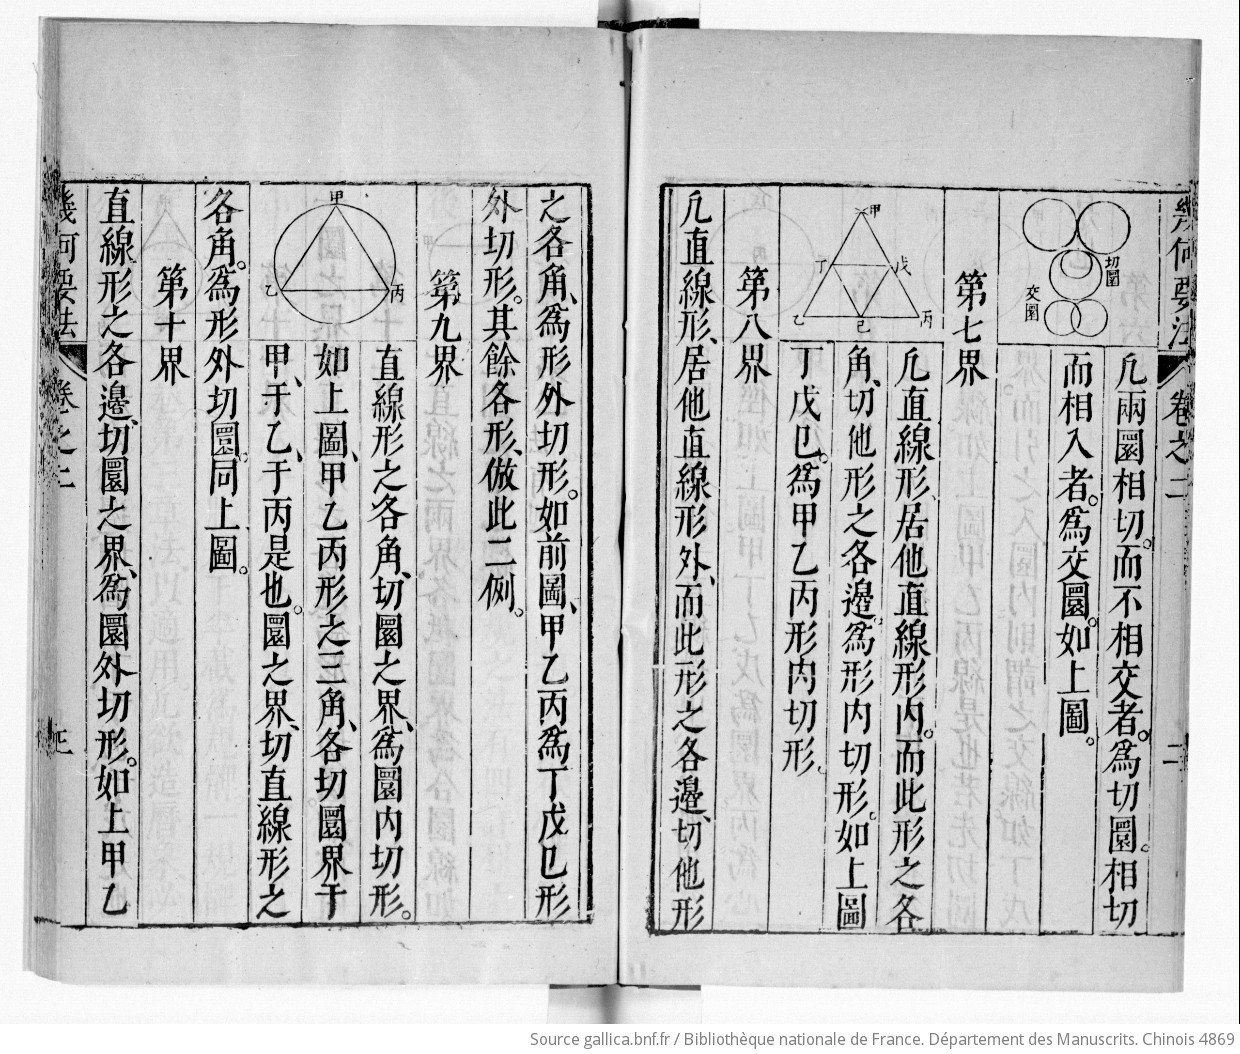 幾何要法 卷之二 二
凢兩圜相切。而不相交者。爲切圜。相切
而相入者。爲交圜。如上圖。
切圜
交圜
第七界
凢直線形、居他直線形内。而此形之各
角、切他形之各邊。爲形内切形。如上圖
丁戊巳。爲甲乙丙形内切形。
甲
丁
戊
乙
巳
丙
第八界
凢直線形、居他直線形外、而此形之各邊、切他形
之各角、爲形外切形。如前圖、甲乙丙爲丁戊巳形
外切形。其餘各形、倣此二例。
第九界
直線形之各角、切圜之界、爲圜内切形。
如上圖、甲乙丙形之三角、各切圜界于
甲、于乙、于丙是也。圜之界、切直線形之
各角。爲形外切圜。同上圖。
甲
乙
丙
第十界
直線形之各邊、切圜之界、爲圜外切形。如上甲乙
幾何要法 卷之二
Source gallica.bnf.fr / Bibliothèque nationale de France. Département des Manuscrits. Chinois 4869